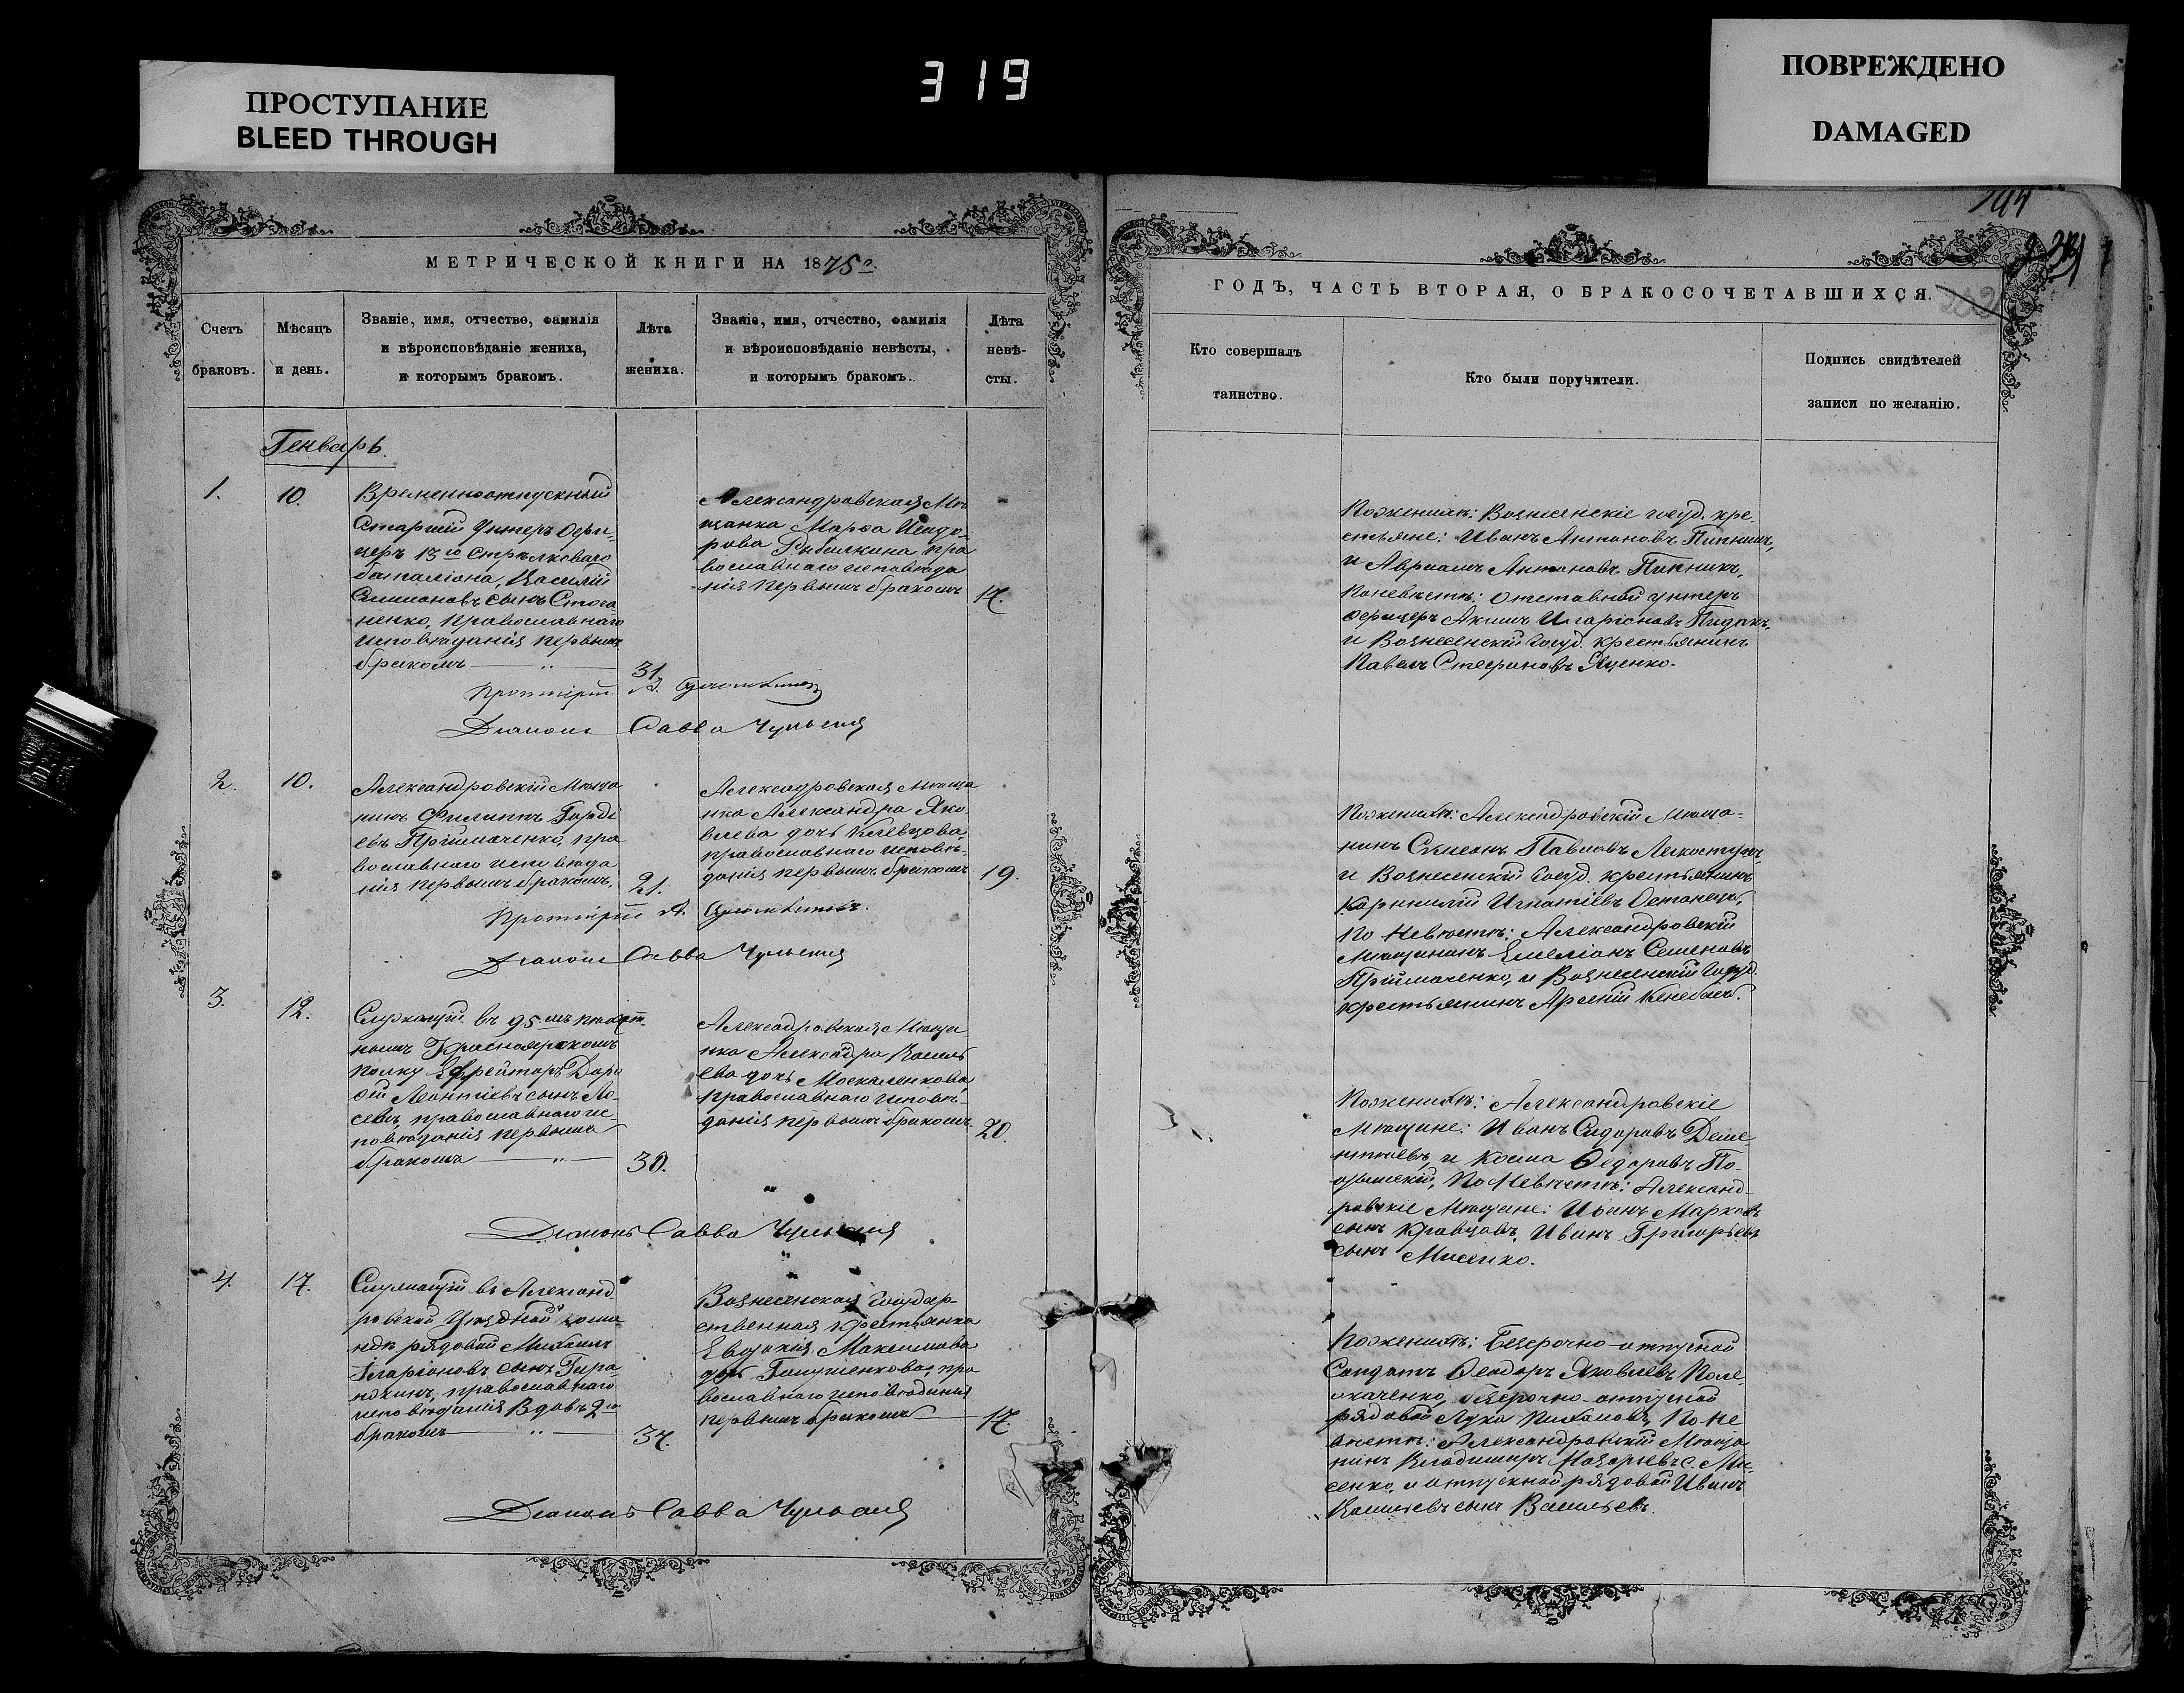 ПРОСТУПАНИЕ
BLEED THROUGH
319
ПОВРЕЖДЕНО
DAMAGED
МЕТРИЧЕСКОЙ КНИГИ НА 1875 о.
Счетъ браковъ.
Мѣсяцъ и день.
Званіе, имя, отчество, фамилія
и вѣроисповѣданіе жениха,
и которымъ бракомъ.
Лѣта жениха.
Званіе, имя, отчество, фамилія
и вѣроисповѣданіе невѣсты,
и которымъ бракомъ.
Лѣта невѣ-
сты.
Генварь.
1.
10.
Временноотпускный
Старшій Унтеръ Офи-
церъ 13го Стрѣлковаго
баталіона, Василій
Симоновъ сынъ Стога
ненко, православнаго
исповѣданія первымъ
бракомъ
31.
Александровская Мѣ
щанка Марѳа Исидо-
рова Рыбалкина пра
вославнаго исповѣда
нія первымъ бракомъ
17.
Протоіерей А.
Діаконъ Савва
2.
10.
Александровскій Мѣща
нинъ Филиппъ Горді
евъ Прійmаченко, пра
вославнаго исповѣда
нія первымъ бракомъ.
21.
Александровская Мѣща
нка Александра Яко-
влева дочь Клевцова,
православнаго исповѣ-
данія первымъ бракомъ
19.
Протоіерей А.
Діаконъ Савва
3.
12.
Служащій въ 95мъ пѣхот-
номъ Красноярскомъ
полку Ефрейторъ Доро
ѳій Леонтіевъ сынъ Ло-
севъ, православнаго ис-
повѣданія первымъ
бракомъ
30.
Александровская Мѣща
нка Александра Василь
ева дочь Москаленкова,
православнаго исповѣ-
данія первымъ бракомъ
20.
Діаконъ Савва
4.
17.
Служащій въ Александ
ровской Уѣздной кома
ндѣ рядовой Михаилъ
Иларіоновъ сынъ
православнаго
исповѣданія Вдовъ 2мъ
бракомъ
37.
Вознесенская Государ-
ственная крестьянка
Евдокія Максимова
дочь пра
вославнаго исповѣданія
первымъ бракомъ
17.
Діаконъ Савва
ГОДЪ, ЧАСТЬ ВТОРАЯ, О БРАКОСОЧЕТАВШИХСЯ.
Кто совершалъ
таинство.
Кто были поручители.
Подпись свидѣтелей
записи по желанію.
По женихѣ: Вознесенскіе госуд. кре-
стьяне: Иванъ Антоновъ Пипникъ,
и Авраамъ Антоновъ Пипникъ,
По невѣстѣ: отставной унтеръ
офицеръ Акимъ Иларіоновъ
и Вознесенскій Госуд. крестьянинъ
Павелъ Стефановъ Яценко.
По женихѣ: Александровскій Мѣща-
нинъ Симеонъ Павловъ Легкоступъ,
и Вознесенскій Госуд. крестьянинъ
Корнилій Игнатіевъ Останецъ,
по Невѣстѣ: Александровскій
Мѣщанинъ Емеліанъ Семеновъ
Пріймаченко, и Вознесенскій Госуд.
крестьянинъ Арсеній
По женихѣ: Александровскіе
Мѣщане: Иванъ Сидоровъ Деме-
нтіевъ, и Косма Ѳедоровъ По-
По Невѣстѣ: Александ-
ровскіе Мѣщане: Иванъ Марковъ
сынъ Кравцовъ, Иванъ Григорьевъ
сынъ Мисенко.
По женихѣ: Безсрочно-отпускной
Солдатъ Ѳеодоръ Яковлевъ
безсрочно-отпускной
рядовой Лука По Не
вѣстѣ: Александровскій Мѣща
нинъ Владимиръ Назарьевъ с. Ми-
сенко, и отпускной рядовой Иванъ
Васильевъ сынъ Васильевъ.